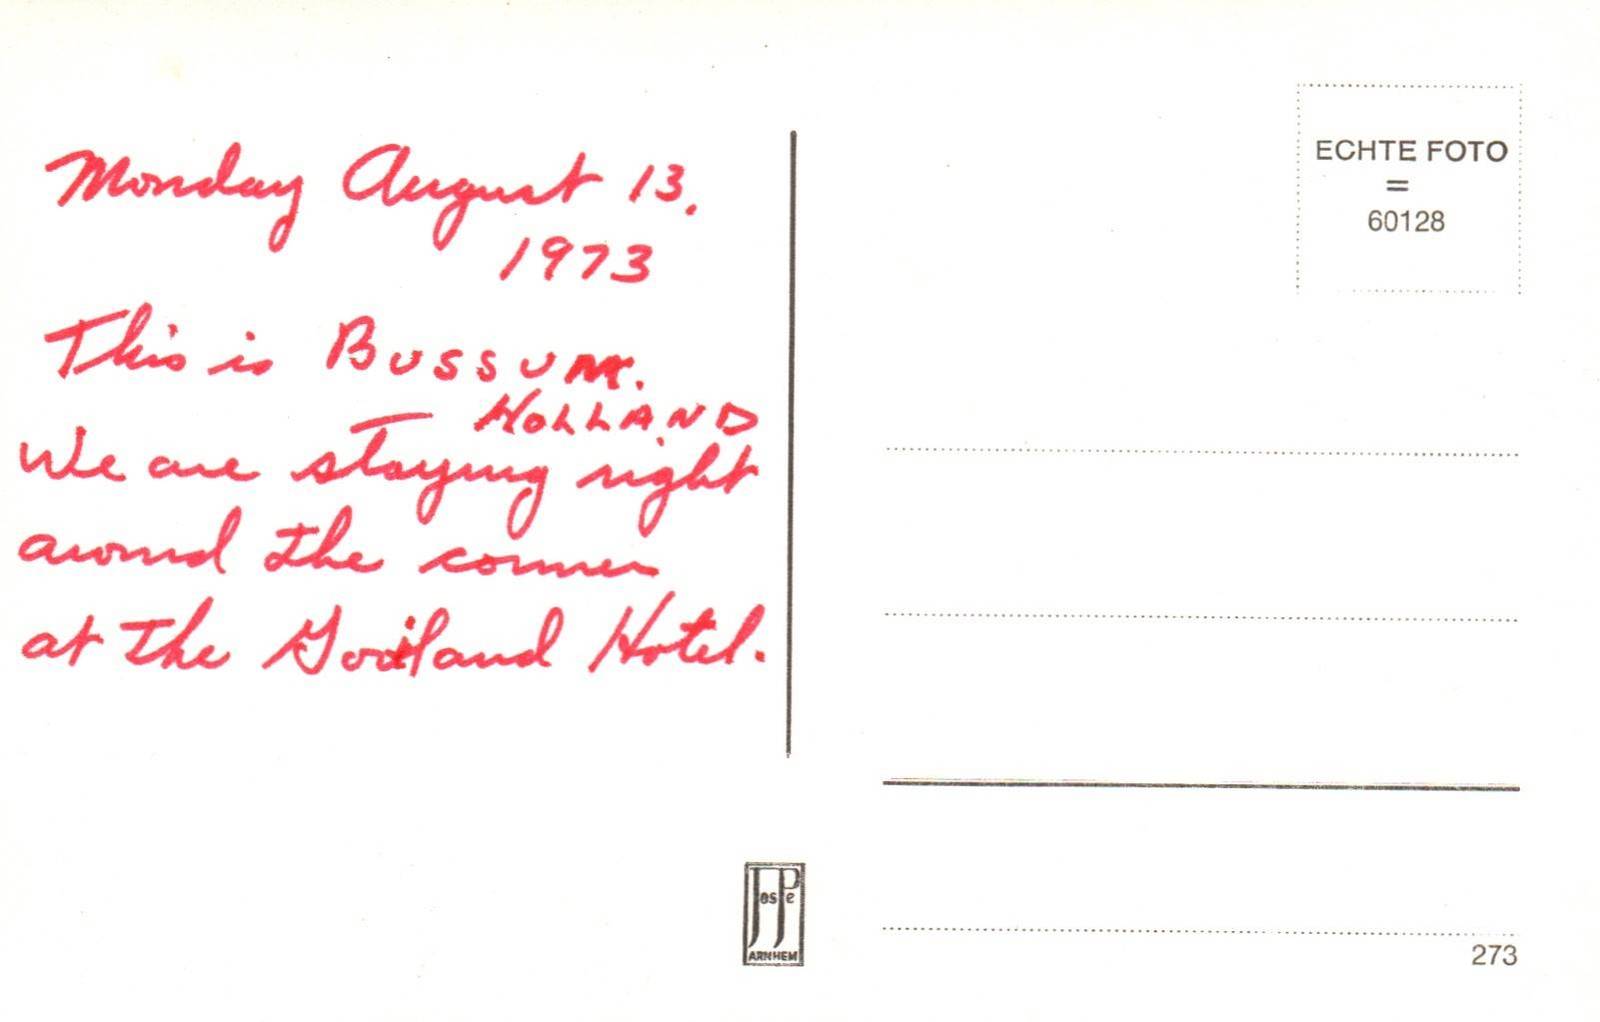 Monday August 13.
1973
This is BUSSUM.
HOLLAND
We are staying right
around the corner
at the Gooiland Hotel.
ECHTE FOTO
=
60128
JosPe
ARNHEM
273